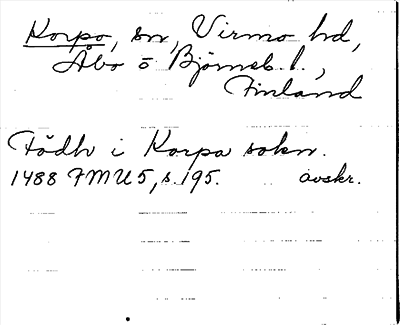 Korpo, sn, Virmo hd,
Åbo o Björneb. l.,
Finland
Födh i Korpa sokn.
1488 FMU 5, s. 195. avskr.